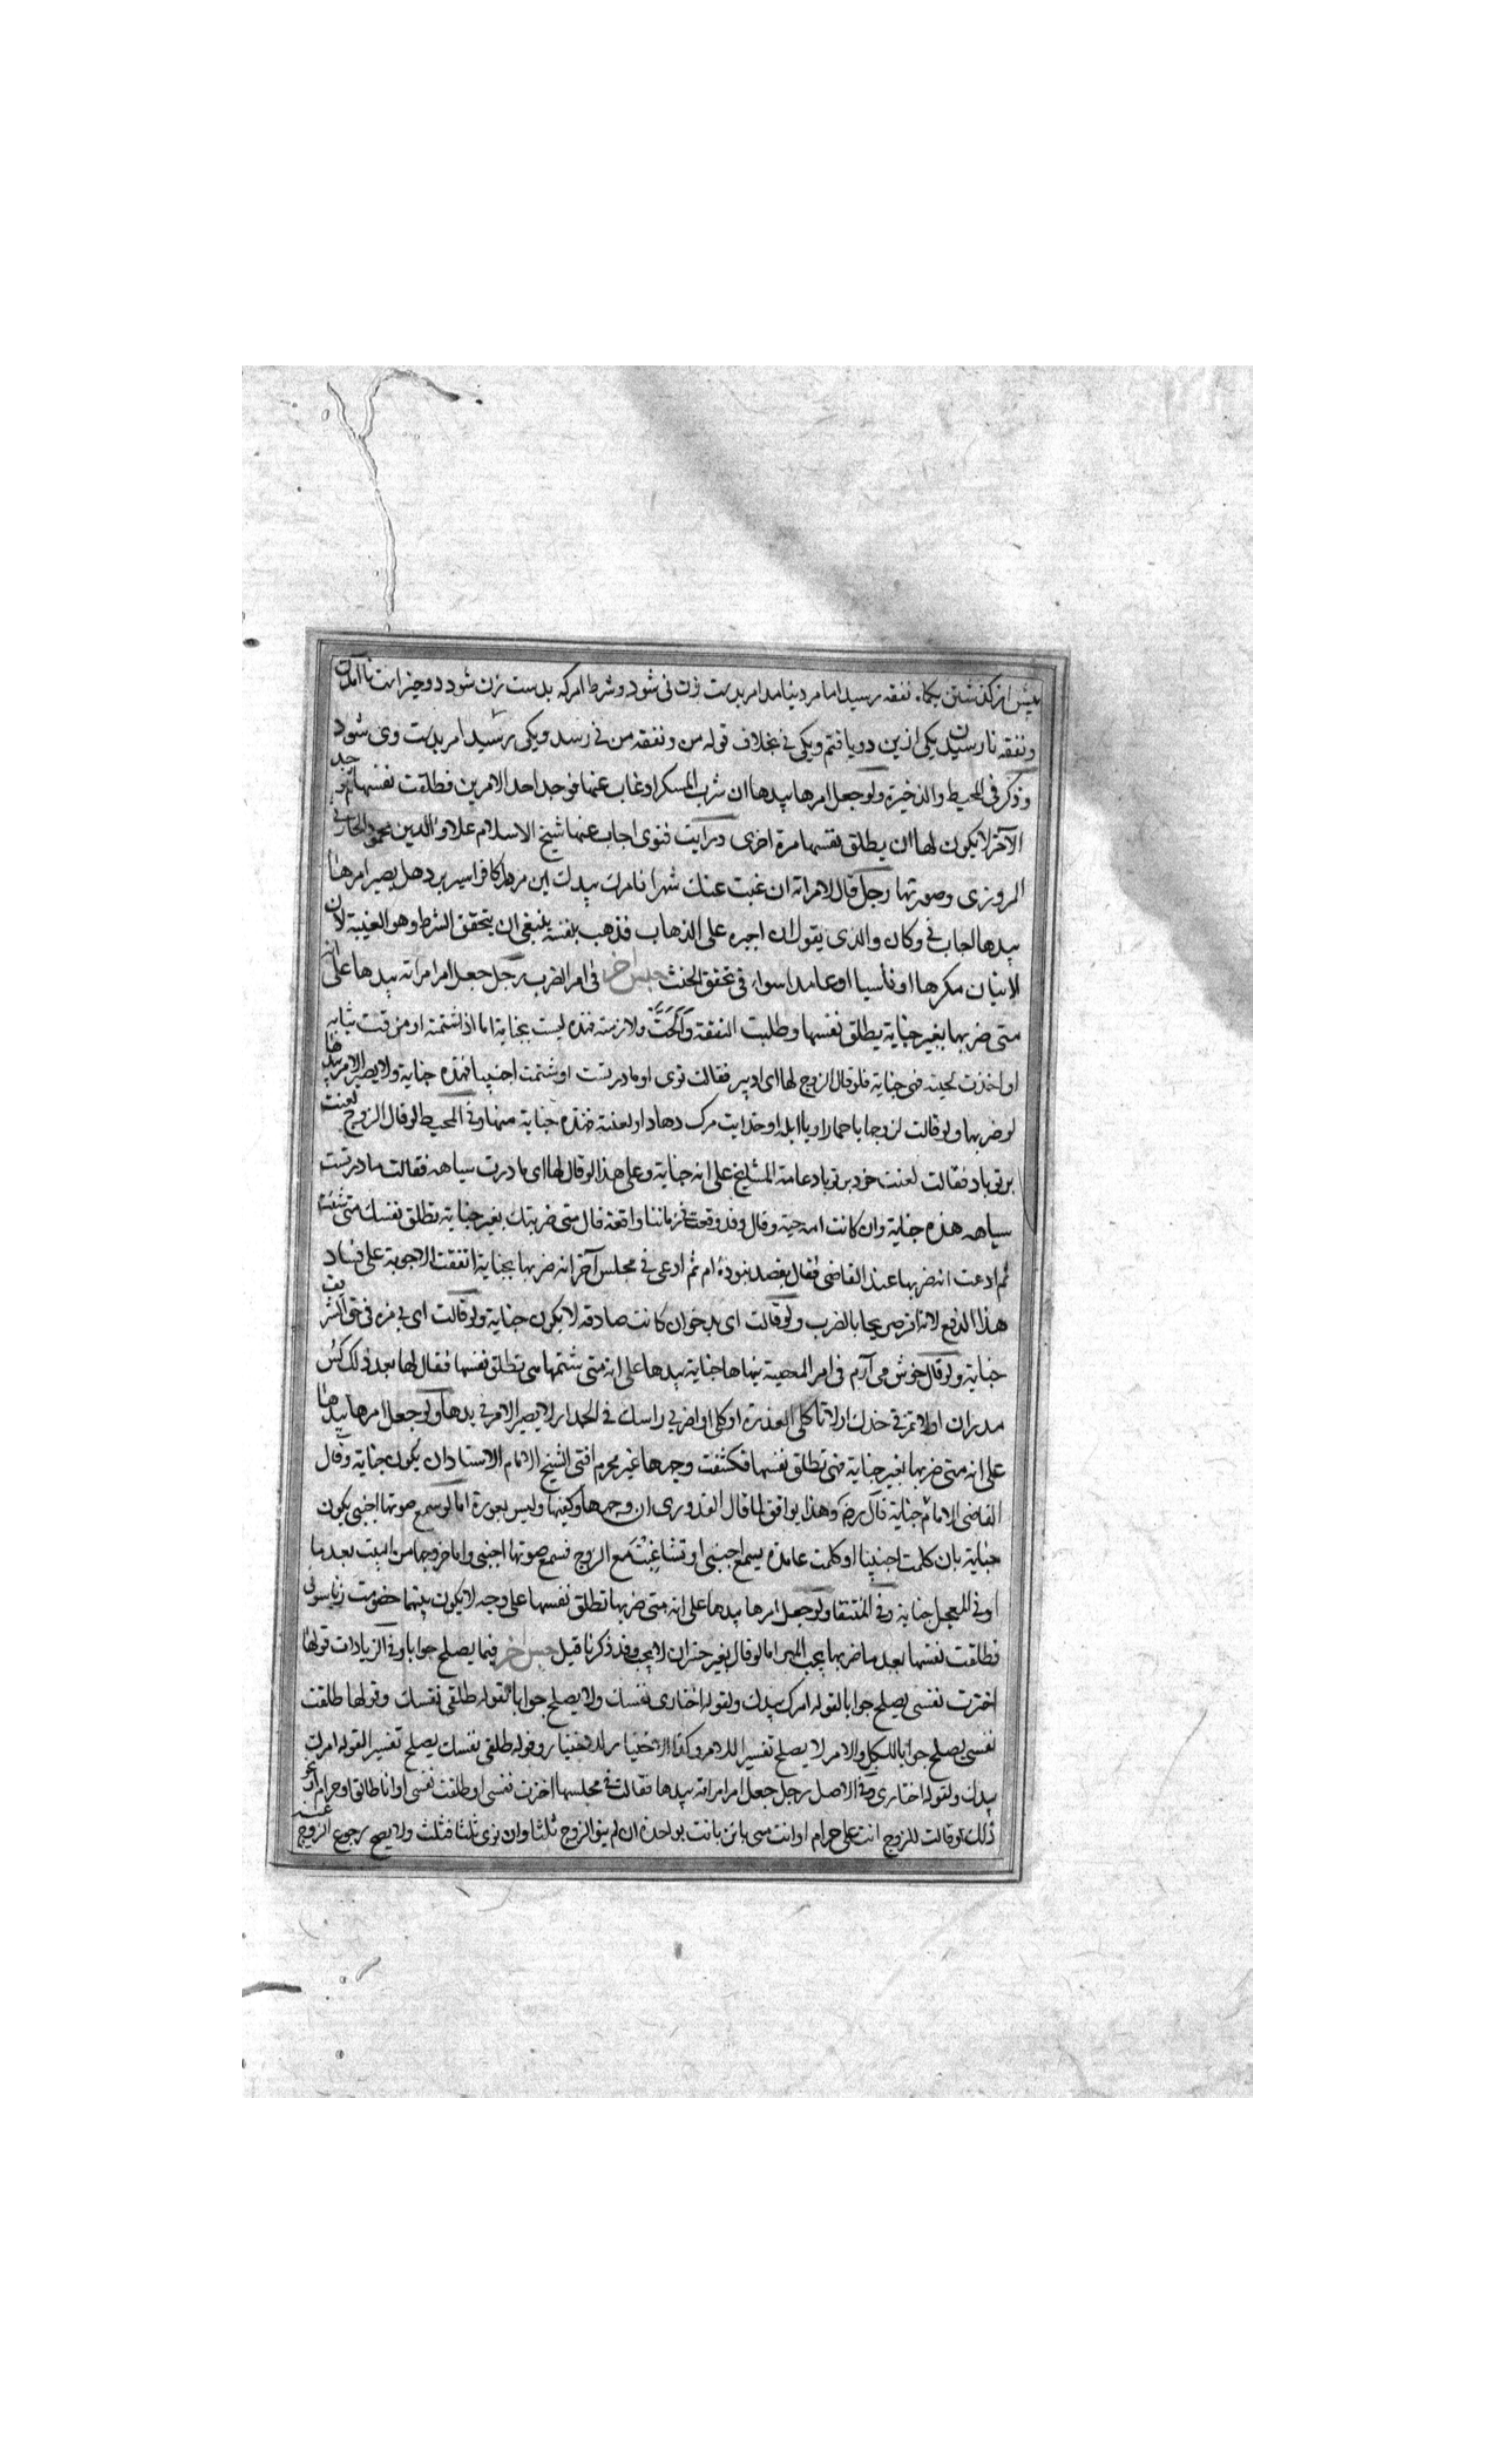 پیش از گذشتن یکماه نفقه رسید اما مرد نیامد امر بدست زن نی شود و شرط امر که بدست زن شود دو چیز است نا آمدن
و نفقه نارسیدن یکی ازین دو یافتم و یکی نی بخلاف قوله من و نفقه من نی رسد و یکی رسید امر بدست وی شود
وذكر فى المحيط والذخيرة ولو جعل امرها بيدها ان شرب المسكر او غاب عنها فوجد احد الامرين فطلقت نفسها ثم وجد
الآخر لا يكون لها ان يطلق نفسها مرة اخرى ورايت فتوى اجاب عنها شيخ الاسلام علاء الدين محمود الحارثى
المروزى وصورتها رجل قال لامراته ان غبت عنك شهرا فامرك بيدك این مرد را کافر اسیر برد هل يصير امرها
بيدها اجاب نى وكان والدى يقول ان اجبره على الذهاب فذهب بنفسه ينبغى ان يتحقق الشرط وهو الغيبة لان
الاتيان مكرها او ناسيا او عامدا سواء فى تحقق الحنث جنس اخر فى امر الضرب رجل جعل امر امراته بيدها على انه
متى ضربها بغير جناية يطلق نفسها وطلبت النفقة وَاَلَحَّتْ ولازمته فهذه ليست بجناية اما اذا شتمته او مزقت ثيابه
او اخذت لحيته فهى جناية فلو قال الزوج لها ای اد پیر فقالت توی او مادر تست او شتمت اجنبيا فهذه جناية ولا يصير الامر بيدها
لو ضربها ولو قالت لزوجها يا حمار او يا ابله او خدایت مرک دهاد او لعنته فهذه جناية منها وفى المحيط لو قال الزوج لعنت
بر تو باد فقالت لعنت خود بر تو باد عامة المشايخ على انه جناية وعلى هذا لو قال لها ای مادرت سیاهه فقالت مادر تست
سیاهه هذه جناية وان كانت امه حية وقال وقد وقعت فى زماننا واقعة قال متى ضربتك بغير جناية تطلق نفسك متى شئت
ثم ادعت انه ضربها عند القاضى فقال بقصد نبوده‌ام ثم ادعى فى مجلس آخر انه ضربها بجناية اتفقت الاجوبة على فساد
هذا الدفع لانه اقر صريحا بالضرب ولو قالت ای بدخوان كانت صادقه لا يكون جناية ولو قالت ای بی مزه فى حق الشريف
جناية ولو قال خوش می آرم فى امر المعصية بينها جناية بيدها على انه متى شتمها هى تطلق نفسها فقال لها بعد ذلك کس
مدران اولا تمزقى خدك اولا تاكلى العذرة او كلى او اضربى راسك فى الجدار لا يصير الامر فى يدها ولو جعل امرها بيدها
على انه متى ضربها بغير جناية فهى تطلق نفسها فكشفت وجهها غير محرم افتى الشيخ الامام الاستاد ان يكون جناية وقال
القاضى الامام جناية قال رضه وهذا يوافق لما قال القدورى ان وجهها وكفيها وليس بعورة اما لو سمع صوتها اجنبى يكون
جناية بان كلمت اجنبيا او كلمت عامدة يسمع اجنبى او تشاغبت مع الزوج فسمع صوتها اجنبى واما خروجها من البيت بعد ما
اوفى المعجل جناية وفى المنتقا ولو جعل امرها بيدها على انه متى ضربها تطلق نفسها على وجه لا يكون بينهما خصومت زناسوئی
فطلقت نفسها بعد ما ضربها يجب المهر اما لو قال بغير خسران لا يجب وقد ذكرنا قبل جنس اخر فيما يصلح جوابا وفى الزيادات قولها
اخترت نفسى يصلح جوابا لقوله امرك بيدك ولقوله اختارى نفسك ولا يصلح جوابا لقوله طلقى نفسك وقولها طلقت
نفسى يصلح جوابا للكل والامر لا يصلح تفسيرا للامر وكذا الاختيار للاختيار وقوله طلقى نفسك يصلح تفسيرا لقوله امرك
بيدك ولقوله اختارى وفى الاصل رجل جعل امر امراته بيدها فقالت فى مجلسها اخترت نفسى او طلقت نفسى او انا طالق او حرام او غير
ذلك او قالت للزوج انت على حرام او انت منى بائن بانت بواحدة ان لم ينو الزوج ثلثا وان نوى ثلثا فثلث ولا يصح رجوع الزوج عنه